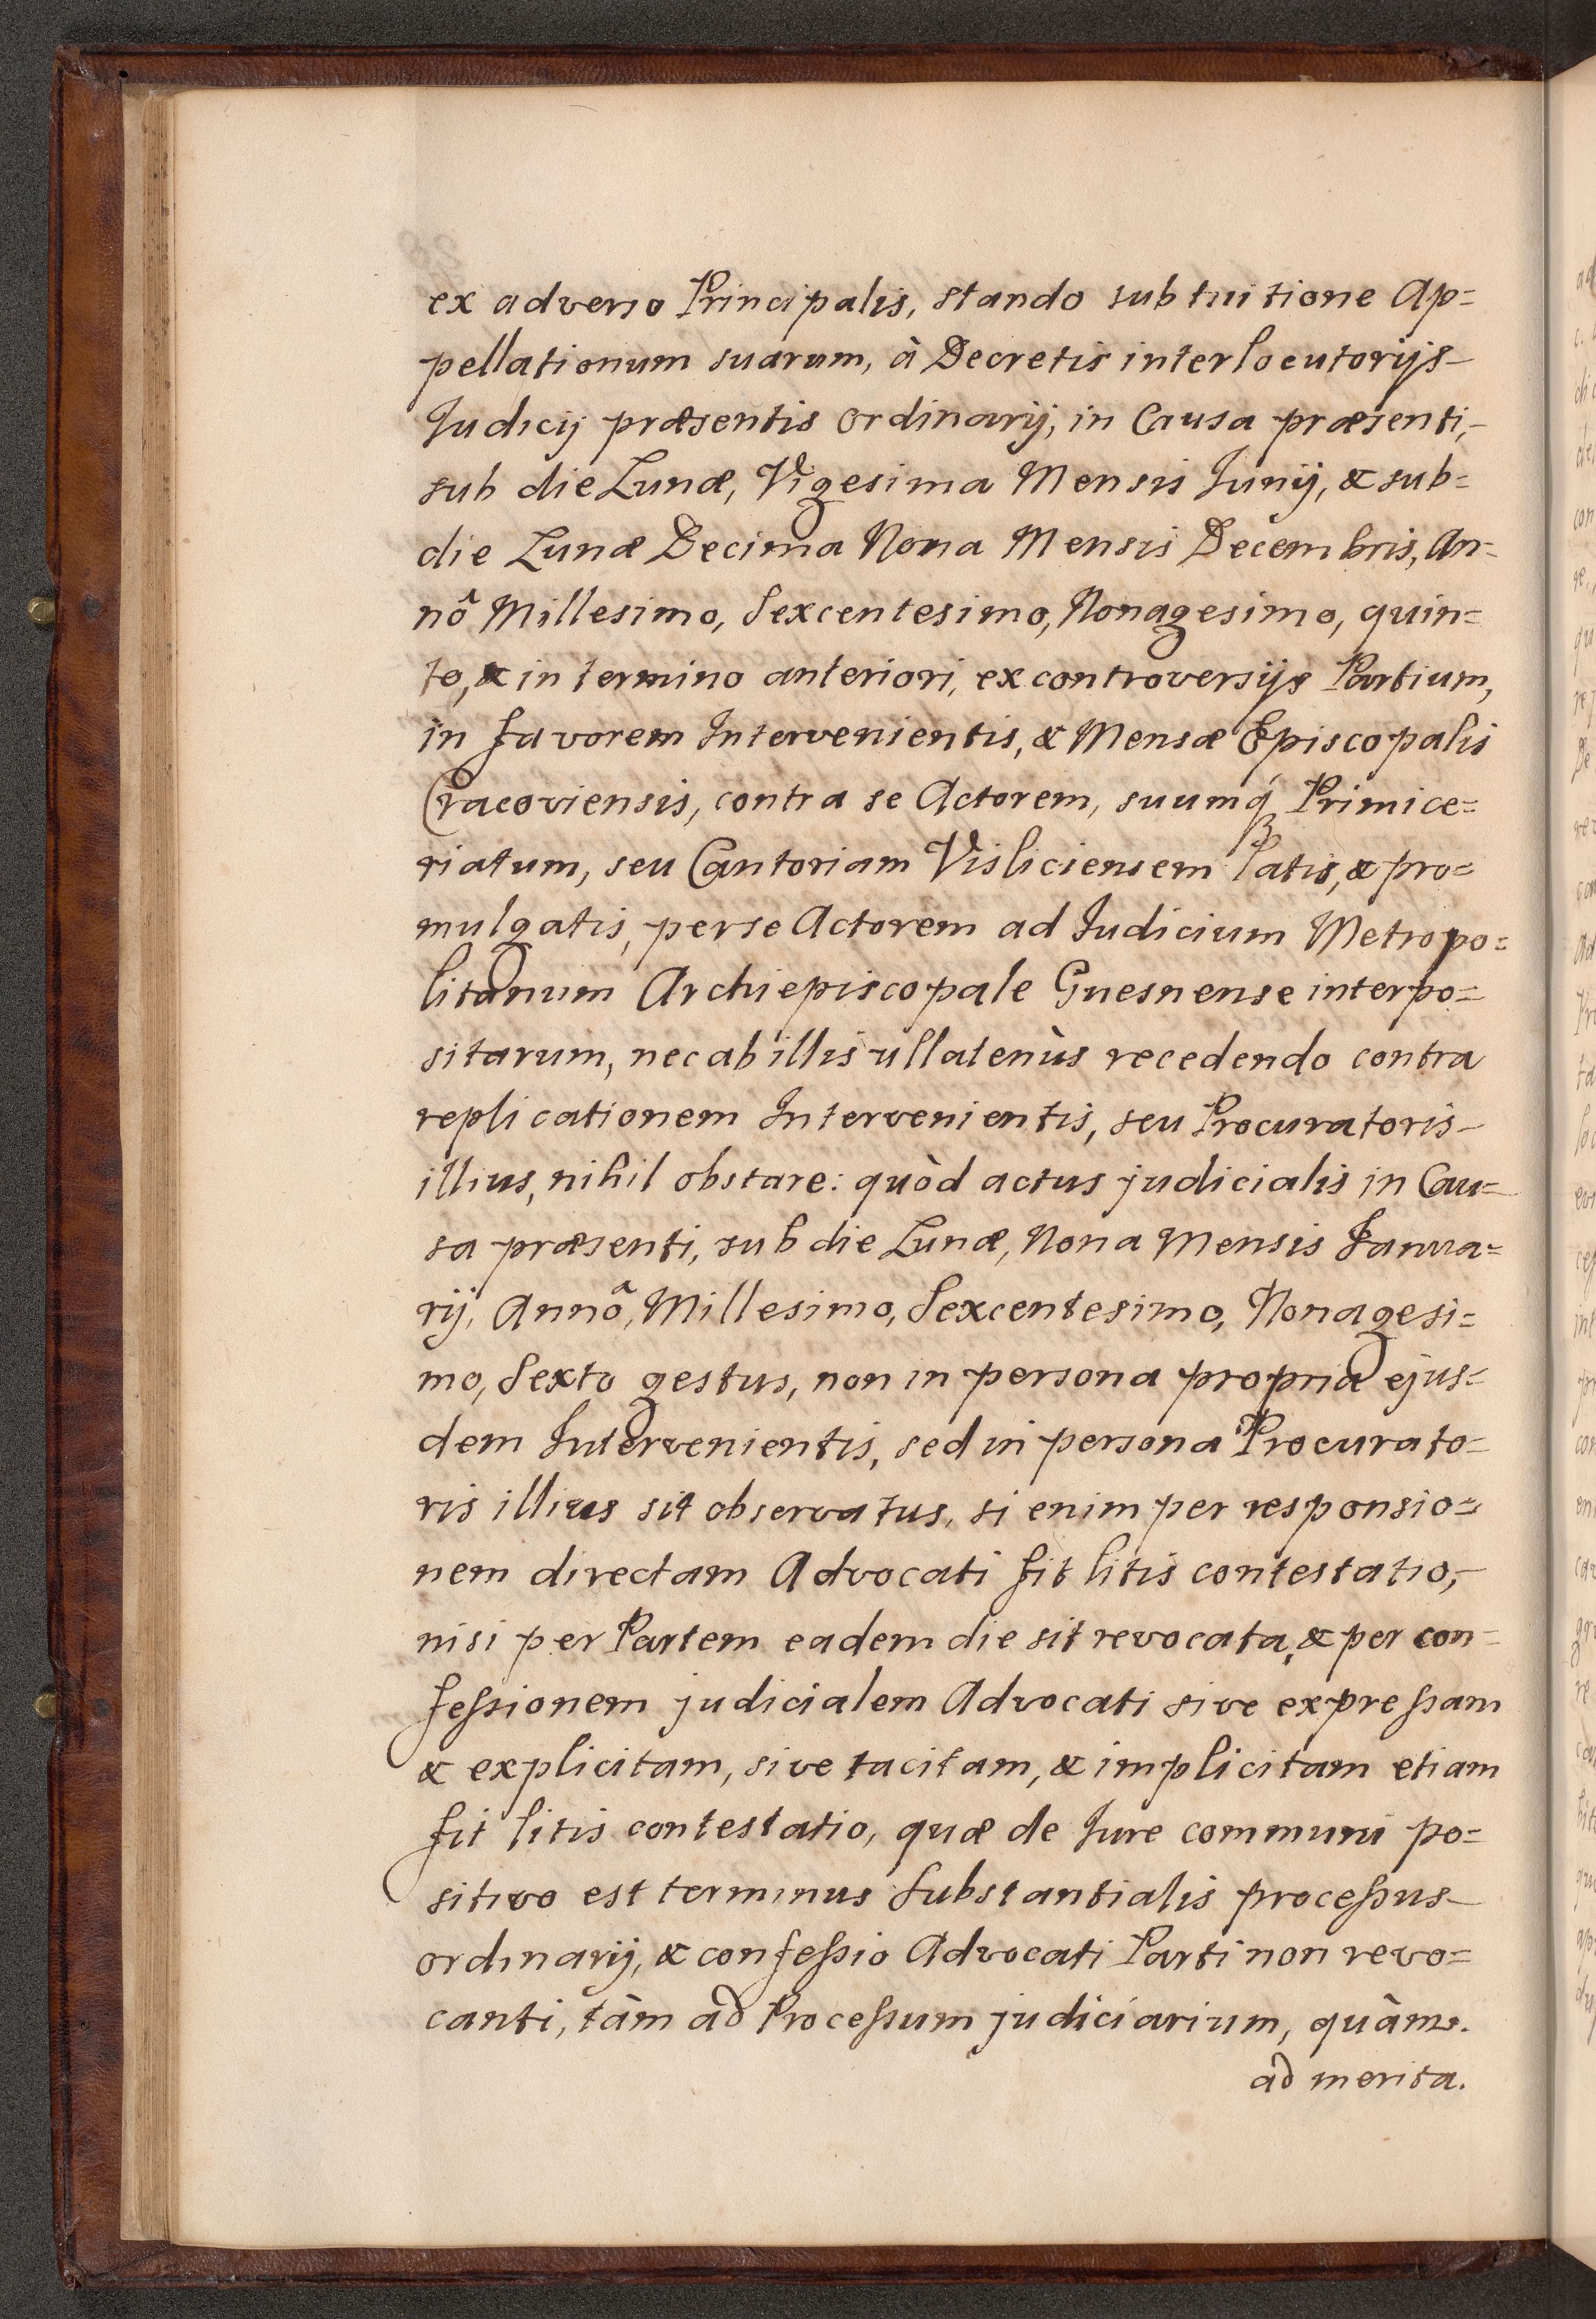 ex adverso Principalis, stando sub tuitione Ap=
pellationum suarum, à Decretis interlocutorijs
Iudicij præsentis Ordinarij, in Causa præsenti,
sub die Lunæ, Vigesima Mensis Iunij, & sub=
die Lunæ Decima Nona Mensis Decembris, An=
nô Millesimo, Sexcentesimo, Nonagesimo, quin=
to, & in termino anteriori, ex controversijs Partium,
in favorem Intervenientis, & Mensæ Episcopalis
Cracoviensis, contra se Actorem, suumq́ Primice=
riatum, seu Cantoriam Visliciensem latis, & pro=
mulgatis, per se Actorem ad Iudicium Metropo=
litanum Archiepiscopale Gnesnense interpo=
sitarum, nec ab illis ullatenùs recedendo contra
replicationem Intervenientis, seu Procuratoris
illius, nihil obstare: quòd actus judicialis in Cau=
sa præsenti, sub die Lunæ, Nona Mensis Ianua=
rij, Annô, Millesimo, Sexcentesimo, Nonagesi=
mo, Sexto gestus, non in persona propria ejus=
dem Intervenientis, sed in persona Procurato=
ris illius sit observatus, si enim per responsio=
nem directam Advocati fit litis contestatio,
nisi per Partem eadem die sit revocata, & per con=
feßionem judicialem Advocati sive expreßam
& explicitam, sive tacitam, & implicitam etiam
fit litis contestatio, quæ de Iure communi po=
sitivo est terminus Substantialis proceßus
ordinarij, & confeßio Advocati Parti non revo=
canti, tàm ad Proceßum judiciarium, quàm.
ad merita.